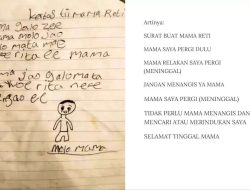 kertas tii mama Reti
mama galo zee
mama molo Jao
galo mata mae
woe rita ee mama
mama Jao galo mata
woe rita nee
Jao ee
Molo mama
Artinya:
SURAT BUAT MAMA RETI
MAMA SAYA PERGI DULU
MAMA RELAKAN SAYA PERGI
(MENINGGAL)
JANGAN MENANGIS YA MAMA
MAMA SAYA PERGI (MENINGGAL)
TIDAK PERLU MAMA MENANGIS DAN
MENCARI ATAU MERINDUKAN SAYA
SELAMAT TINGGAL MAMA